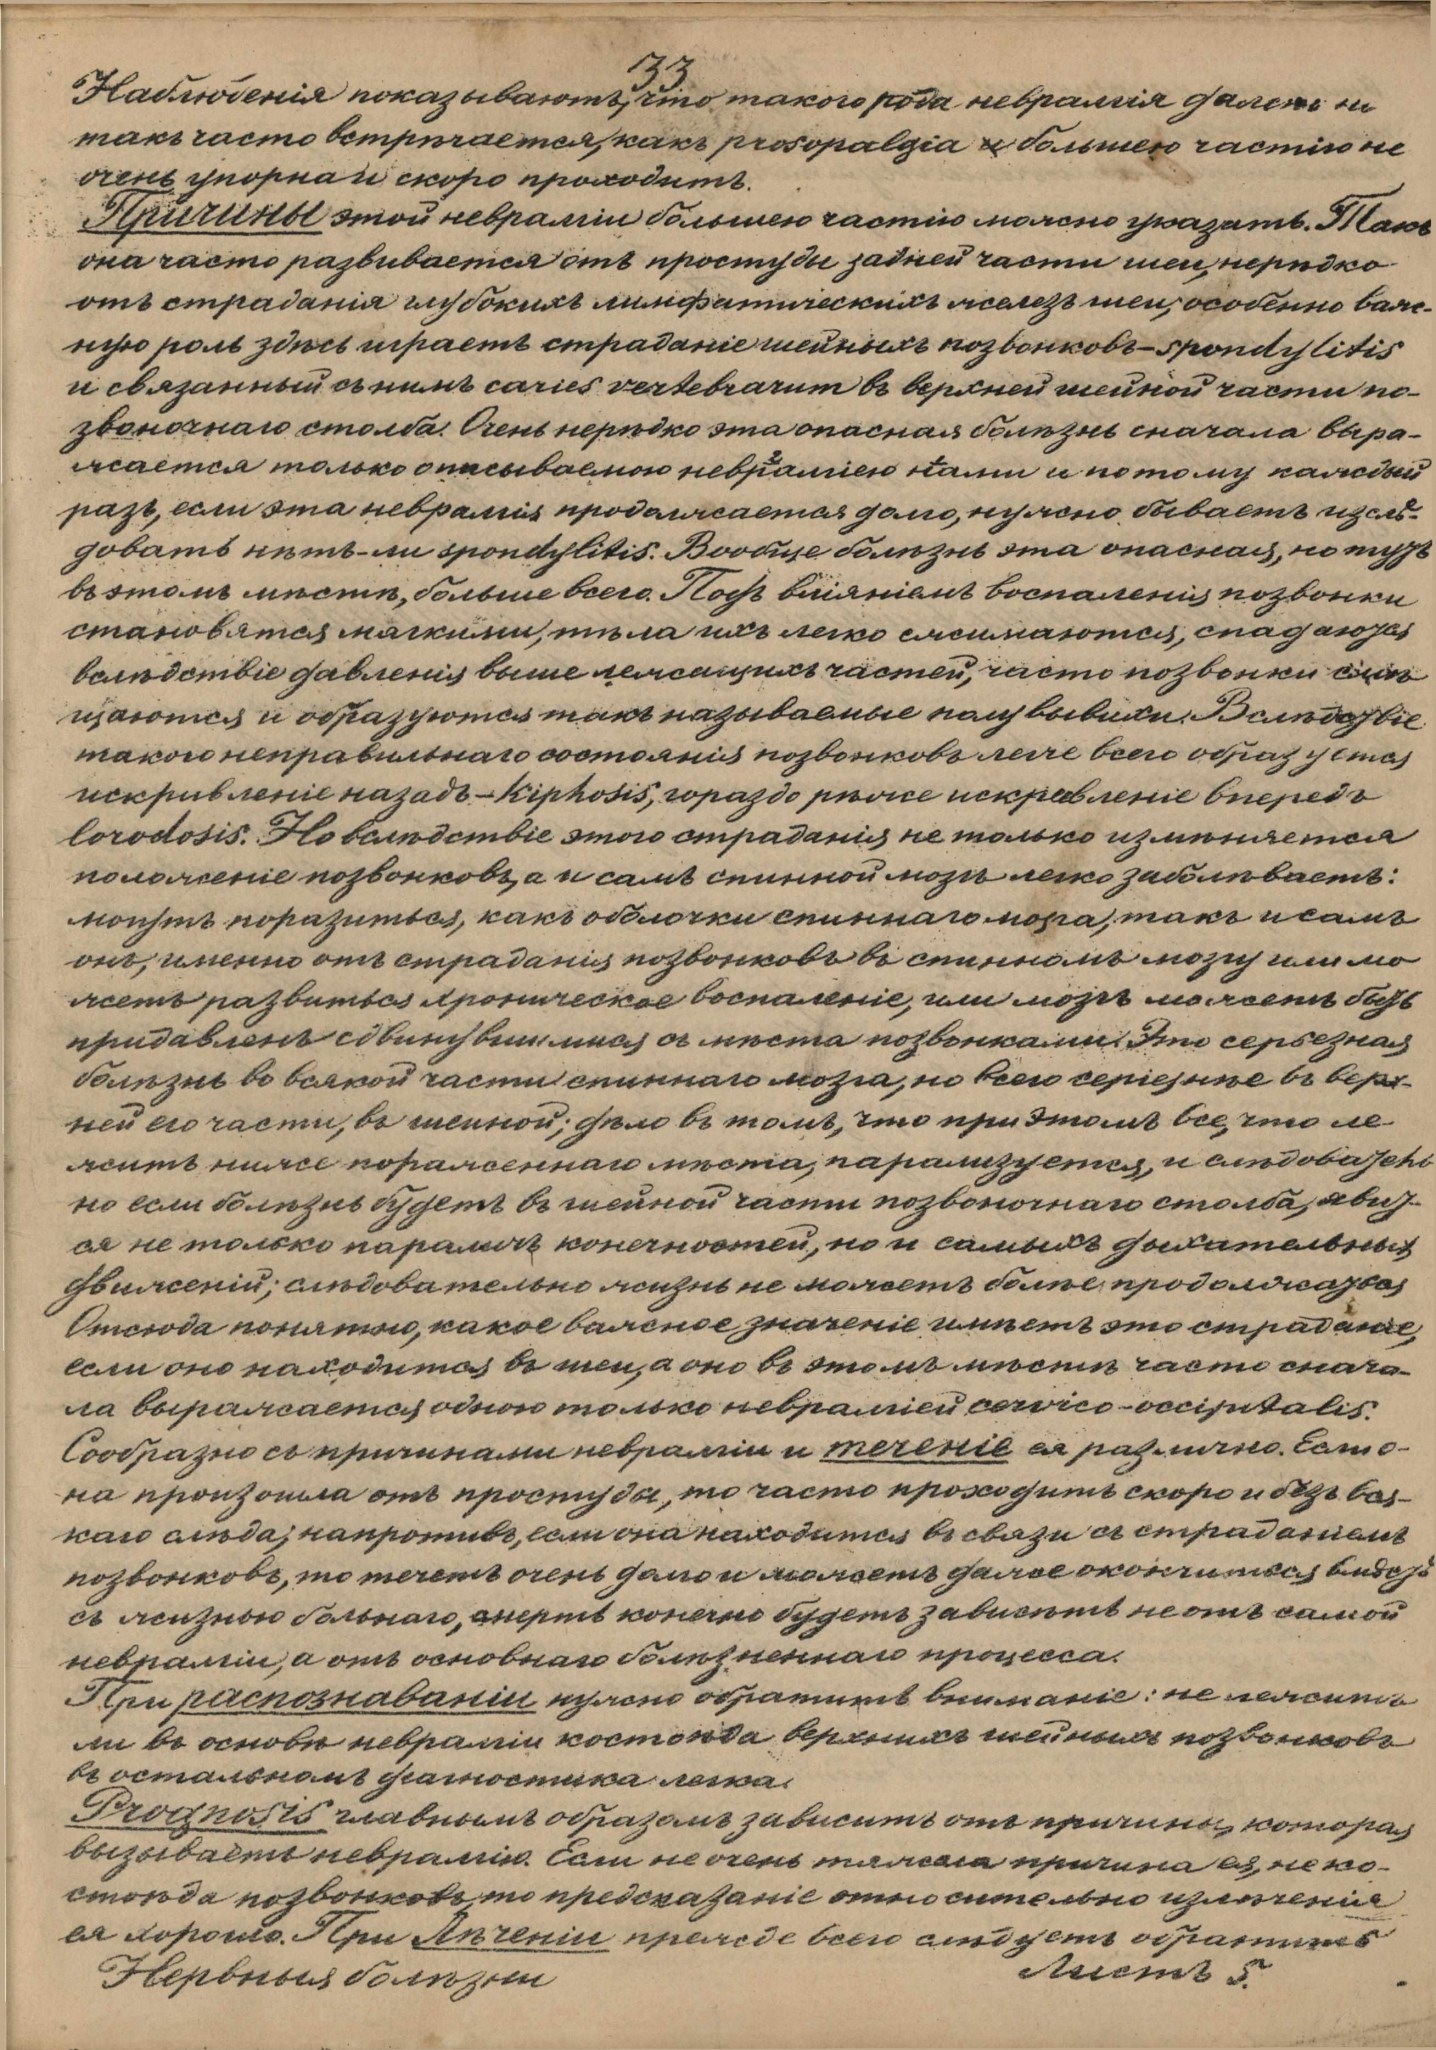 33
Наблюденія показываютъ, что такого рода невралгія далеко не
такъ часто встрѣчается, какъ prosopalgia и большею частію не
очень упорна и скоро проходитъ.
Причины этой невралгіи большею частію можно указать. Такъ
она часто развивается отъ простуды задней части шеи, нерѣдко
отъ страданія глубокихъ лимфатическихъ железъ шеи, особенно важ-
ную роль здѣсь играетъ страданіе шейныхъ позвонковъ – spondylitis
и связанный съ нимъ caries vertebrarum въ верхней шейной части по-
звоночнаго столба. Очень нерѣдко эта опасная болѣзнь сначала выра-
жается только описываемою невралгіею нами и потому каждый
разъ, если эта невралгія продолжается долго, нужно бываетъ изслѣ-
довать нѣтъ-ли spondylitis. Вообще болѣзнь эта опасная, но тутъ
въ этомъ мѣстѣ, больше всего. Подъ вліяніемъ воспаленія позвонки
становятся мягкими, тѣла ихъ легко сжимаются, спадаются
вслѣдствіе давленія выше лежащихъ частей, часто позвонки смѣ
щаются и образуются такъ называемые полувывихи. Вслѣдствіе
такого неправильнаго состоянія позвонковъ легче всего образуется
искривленіе назадъ – Kiphosis, гораздо рѣже искривленіе впередъ
lorodosis. Но вслѣдствіе этого страданія не только измѣняется
положеніе позвонковъ, а и самъ спинной мозгъ легко заболѣваетъ:
могутъ поразиться, какъ оболочки спиннаго мозга, такъ и самъ
онъ, именно отъ страданія позвонковъ въ спинномъ мозгу или мо
жетъ развиться хроническое воспаленіе, или мозгъ можетъ быть
придавленъ сдвинувшимися съ мѣста позвонками. Это серьезная
болѣзнь во всякой части спиннаго мозга, но всего серіезнѣе въ верх-
ней его части, въ шейной; дѣло въ томъ, что при этомъ все, что ле-
житъ ниже пораженнаго мѣста, парализуется, и слѣдователь
но если болѣзнь будетъ въ шейной части позвоночнаго столба, явит-
ся не только параличъ конечностей, но и самыхъ дыхательныхъ
движеній; слѣдовательно жизнь не можетъ болѣе продолжаться
Отсюда понятно, какое важное значеніе имѣетъ это страданіе,
если оно находится въ шеи, а оно въ этомъ мѣстѣ часто снача-
ла выражается одною только невралгіей cervico-occipitalis.
Сообразно съ причинами невралгіи и теченіе ея различно. Если о-
на произошла отъ простуды, то часто проходитъ скоро и безъ вся-
каго слѣда; напротивъ, если она находится въ связи съ страданіемъ
позвонковъ, то течетъ очень долго и можетъ далѣе окончиться вмѣстѣ
съ жизнью больнаго, смерть конечно будетъ зависѣть не отъ самой
невралгіи, а отъ основнаго болѣзненнаго процесса.
При распознаваніи нужно обратить вниманіе: не лежитъ
ли въ основѣ невралгіи костоѣда верхнихъ шейныхъ позвонковъ
въ остальномъ діагностика легка.
Prognosis главнымъ образомъ зависитъ отъ причины, которая
вызываетъ невралгію. Если не очень тяжела причина ея, не ко-
стоѣда позвонковъ, то предсказаніе относительно излѣченія
ея хорошо. При Лѣченіи прежде всего слѣдуетъ обратить
Нервныя болѣзни Листъ 5.